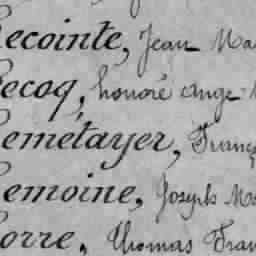 Lecointe, Jean Ma
Lecoq, honoré ange
Lemétayer, Franç
Lemoine, Joseph Ma
Lorre, Thomas Fran